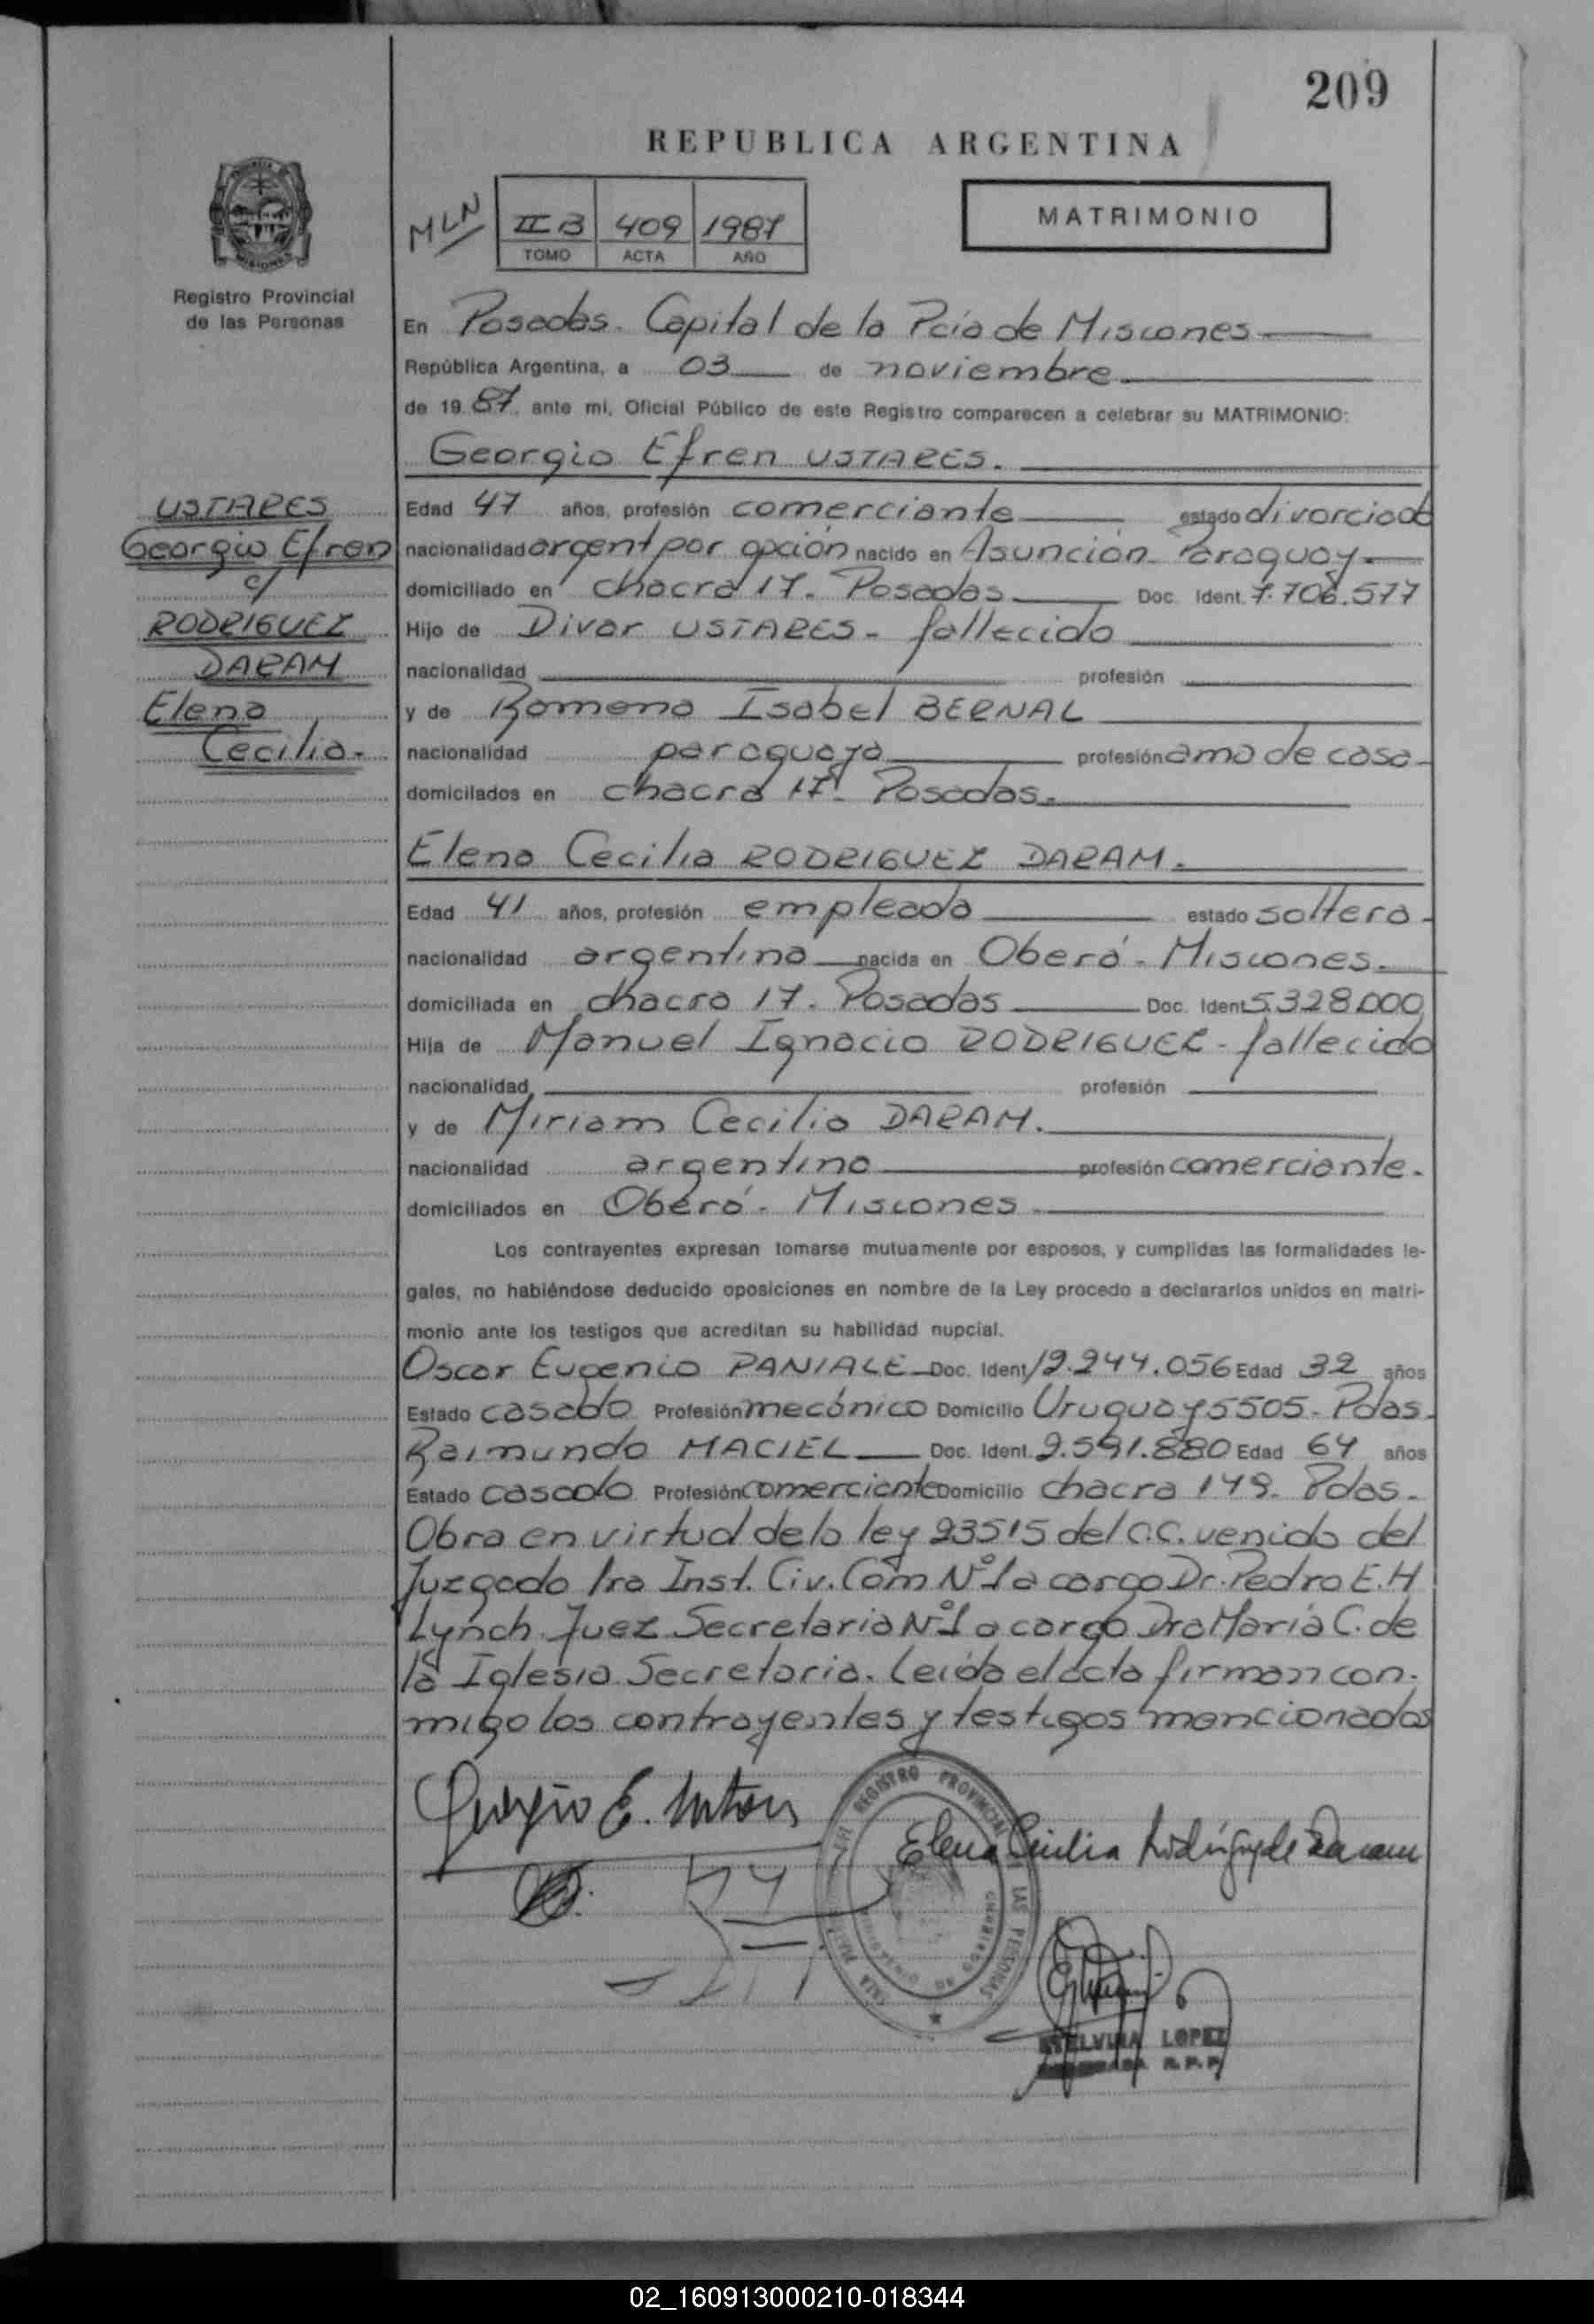 209
REPUBLICA ARGENTINA
MLN
II B 409 1987
TOMO ACTA AÑO
MATRIMONIO
Registro Provincial
de las Personas
En Posadas. Capital de la Pcia de Misiones
República Argentina, a 03 de noviembre
de 19 87, ante mi, Oficial Público de este Registro comparecen a celebrar su MATRIMONIO:
Georgio Efren USTARES.
USTARES
Georgio Efren
c/
RODRIGUEZ
DARAM
Elena
Cecilia.
Edad 47 años, profesión comerciante estado divorciado
nacionalidad argent por opción nacido en Asunción - Paraguay.
domiciliado en chacra 17. Posadas Doc. Ident. 7.706.577
Hijo de Divar USTARES - fallecido
nacionalidad profesión
y de Romona Isabel BERNAL
nacionalidad paraguaya profesión ama de casa
domicilados en chacra 17. Posadas.
Elena Cecilia RODRIGUEZ DARAM.
Edad 41 años, profesión empleada estado soltera
nacionalidad argentina nacida en Oberá - Misiones.
domiciliada en chacra 17. Posadas Doc. Ident 5.328.000
Hija de Manuel Ignacio RODRIGUEZ - fallecido
nacionalidad profesión
y de Miriam Cecilia DARAM.
nacionalidad argentina profesión comerciante.
domiciliados en Oberá - Misiones
Los contrayentes expresan tomarse mutuamente por esposos, y cumplidas las formalidades le-
gales, no habiéndose deducido oposiciones en nombre de la Ley procedo a declararlos unidos en matri-
monio ante los testigos que acreditan su habilidad nupcial.
Oscar Eugenio PANIALE Doc. Ident 12.244.056 Edad 32 años
Estado casado Profesión mecánico Domicilio Uruguay 5505 - Pdas.
Raimundo MACIEL Doc. Ident. 9.591.880 Edad 64 años
Estado casado Profesión comerciante Domicilio chacra 149. Pdas.
Obra en virtud de la ley 23515 del C.C. venido del
Juzgado 1ra Inst. Civ. Com Nº 1 a cargo Dr. Pedro E.H
Lynch Juez Secretaria Nº 1 a cargo Dra María C. de
la Iglesia Secretaria. Leída el acta firman con-
migo los contrayentes y testigos mencionados
Elena Cecilia Rodríguez de Daram
REGISTRO PROVINCIAL DE LAS PERSONAS
LOPEZ
R. P. P.
02_160913000210-018344